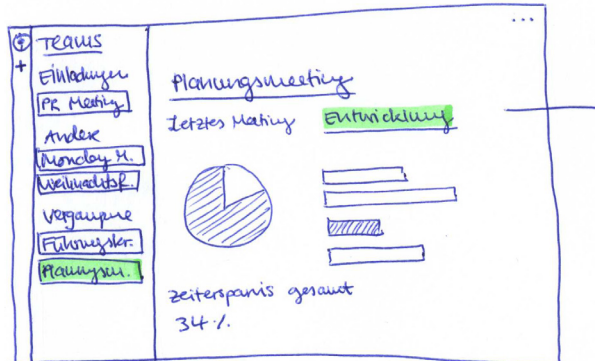 ...
+
Teams
Einladungen
PR Meeting
Andere
Monday M.
Weihnachtsf.
Vergangene
Führungskr.
Planungsm.
Planungsmeeting
Letztes Meeting
Entwicklung
Zeitersparnis gesamt
34 %